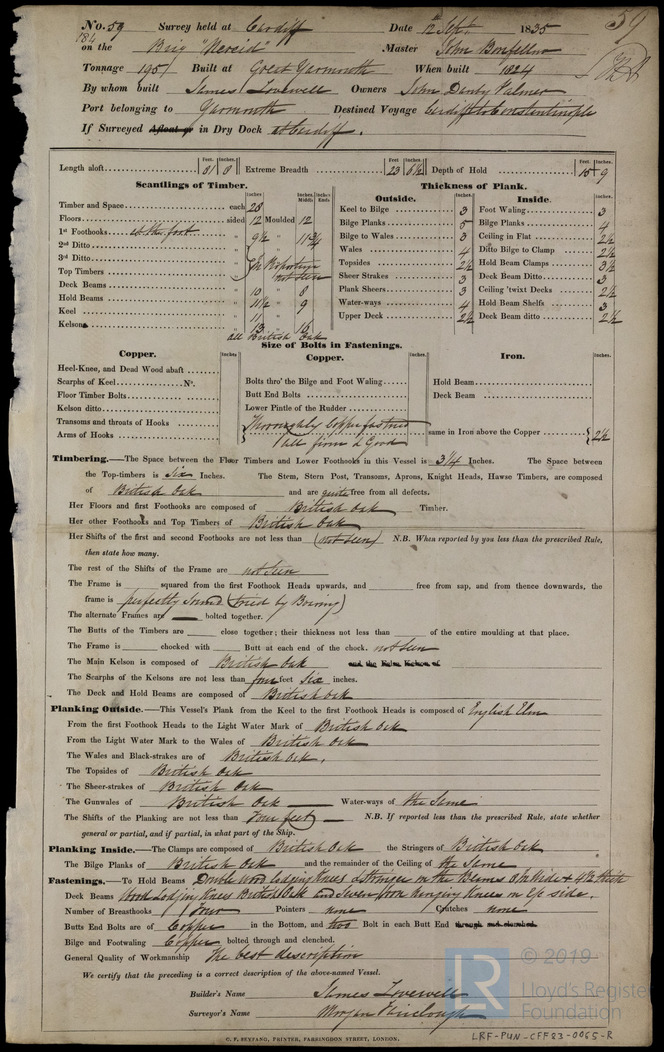 No. 59 Survey held at Cardiff Date 12 Sept 1835
59
184
on the Brig "Nereid" Master John Bonfellow
Tonnage 195 Built at Great Yarmouth When built 1824
By whom built James Lovewell Owners John Danby Palmer
Port belonging to Yarmouth Destined Voyage Cardiff to Constantinople
If Surveyed Afloat or in Dry Dock at Cardiff.
Feet. Inches. Feet. Inches. Feet. Inches.
Length aloft 81 8 Extreme Breadth 23 6½ Depth of Hold 15 9
Scantlings of Timber.
Inches Inches Middle Inches Ends
Timber and Space each 28
Floors sided 12 Moulded 12
1st Foothooks at the foot " 9½ " 11¾
2nd Ditto "
3rd Ditto " In Proportion
Top Timbers " not seen
Deck Beams " 10 8
Hold Beams " 11½ " 9
Keel " 11
Kelsons " 13 " 16
all British Oak
Thickness of Plank.
Outside.
Inches.
Keel to Bilge 3
Bilge Planks 5
Bilge to Wales 3
Wales 4
Topsides 2½
Sheer Strakes 3
Plank Sheers 3
Water-ways 4
Upper Deck 2½
Inside.
Inches.
Foot Waling 3
Bilge Planks 4
Ceiling in Flat 2½
Ditto Bilge to Clamp 2½
Hold Beam Clamps 3½
Deck Beam Ditto 3
Ceiling 'twixt Decks 2½
Hold Beam Shelfs 3
Deck Beam ditto 2½
Size of Bolts in Fastenings.
Copper.
Inches.
Heel-Knee, and Dead Wood abaft
Scarphs of Keel No.
Floor Timber Bolts
Kelson ditto
Transoms and throats of Hooks
Arms of Hooks
Copper.
Inches.
Bolts thro' the Bilge and Foot Waling
Butt End Bolts
Lower Pintle of the Rudder
Thoroughly Copper fastened
& all firm & Good
Iron.
Inches.
Hold Beam
Deck Beam
same in Iron above the Copper 2½
Timbering.—The Space between the Floor Timbers and Lower Foothooks in this Vessel is 3¼ Inches. The Space between
the Top-timbers is Six Inches. The Stem, Stern Post, Transoms, Aprons, Knight Heads, Hawse Timbers, are composed
of British Oak and are quite free from all defects.
Her Floors and first Foothooks are composed of British Oak Timber.
Her other Foothooks and Top Timbers of British Oak
Her Shifts of the first and second Foothooks are not less than (not seen) N.B. When reported by you less than the prescribed Rule,
then state how many.
The rest of the Shifts of the Frame are not seen
The Frame is squared from the first Foothook Heads upwards, and free from sap, and from thence downwards, the
frame is perfectly sound (tried by Boring)
The alternate Frames are bolted together.
The Butts of the Timbers are close together; their thickness not less than of the entire moulding at that place.
The Frame is chocked with Butt at each end of the chock. not seen
The Main Kelson is composed of British Oak and the False Kelson of
The Scarphs of the Kelsons are not less than four feet six inches.
The Deck and Hold Beams are composed of British Oak
Planking Outside.—This Vessel's Plank from the Keel to the first Foothook Heads is composed of English Elm
From the first Foothook Heads to the Light Water Mark of British Oak
From the Light Water Mark to the Wales of British Oak
The Wales and Black-strakes are of British Oak.
The Topsides of British Oak
The Sheer-strakes of British Oak
The Gunwales of British Oak Water-ways of the Same
The Shifts of the Planking are not less than Four feet N.B. If reported less than the prescribed Rule, state whether
general or partial, and if partial, in what part of the Ship.
Planking Inside.—The Clamps are composed of British Oak the Stringers of British Oak
The Bilge Planks of British Oak and the remainder of the Ceiling of the Same
Fastenings.—To Hold Beams Double wood Lodging Knees & Stringer on the Beams
Deck Beams Wood Lodging Knees British Oak and Seven Iron hanging Knees on Ea side.
Number of Breasthooks Four Pointers none Crutches none
Butts End Bolts are of Copper in the Bottom, and two Bolt in each Butt End through and clenched.
Bilge and Footwaling Copper bolted through and clenched.
General Quality of Workmanship The best description
We certify that the preceding is a correct description of the above-named Vessel.
Builder's Name James Lovewell
Surveyor's Name Morgan Fairclough
C. F. SEYFANG, PRINTER, FARRINGDON STREET, LONDON.
LR © 2019
Lloyd's Register
Foundation
LRF-PUN-CFF83-0065-R